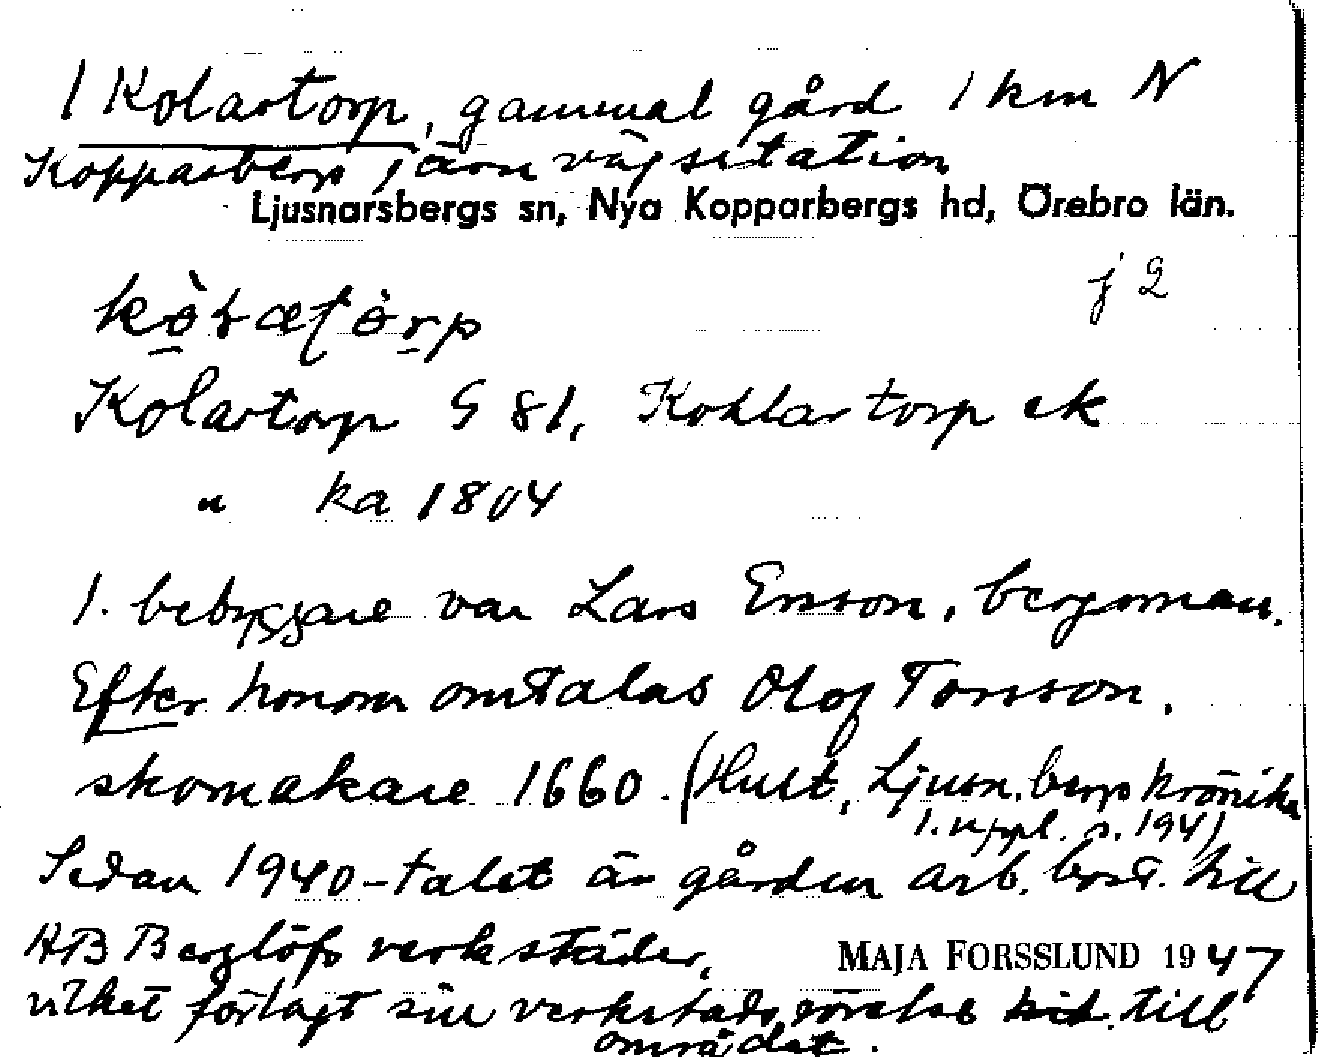 1 Kolartorp, gammal gård 1 km N
Kopparbergs järnvägsstation
Ljusnarsbergs sn, Nya Kopparbergs hd, Örebro län.
j 2
Kolartorp G 81, Kohlartorp ek
" ka 1804
1. bebyggare var Lars Ersson, bergsman.
Efter honom omtalas Olof Torsson,
skomakare 1660. (Hult, Ljusn.bergs krönika
1. uppl. s. 194)
Sedan 1940-talet är gården arb. bost. till
AB Berglöfs verkstäder,
MAJA FORSSLUND 1947
vilket förlagt sin verkstadsrörelse hit. till
området.